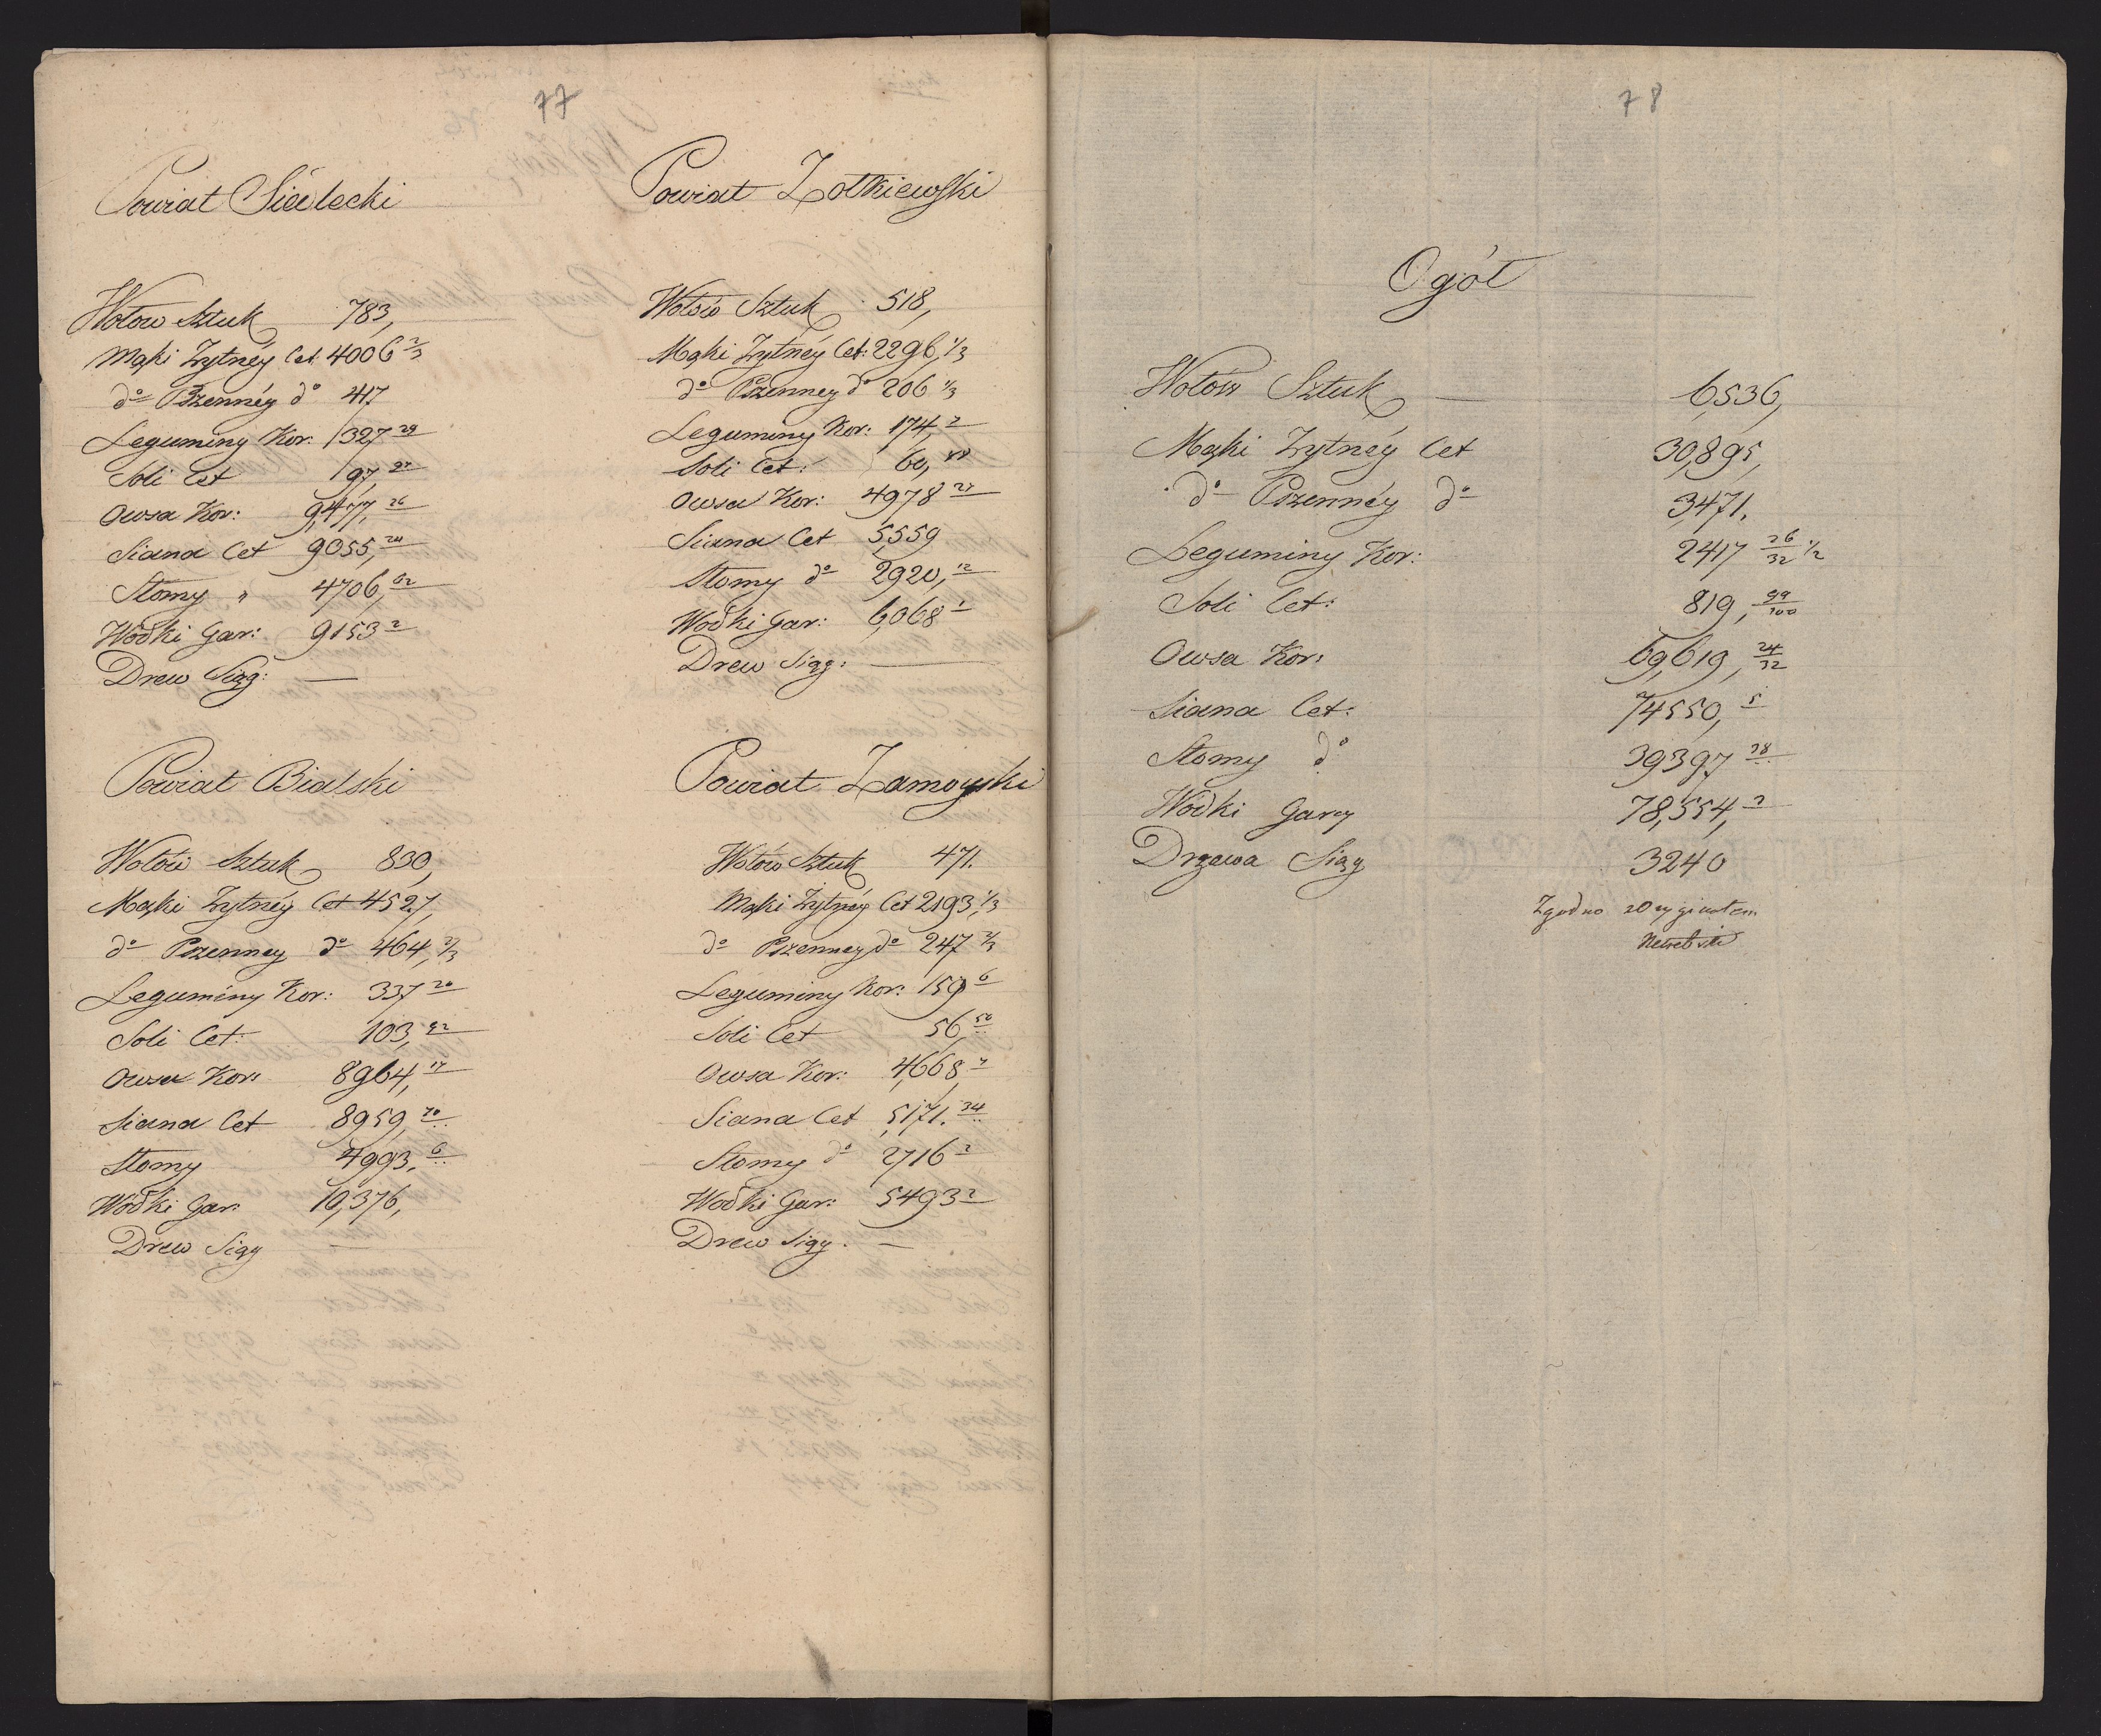 77
Powiat Siedlecki
Wołow Sztuk 783,
Mąki Żytnéy Cet. 4006 2/3
do Pszennéy do 417
Leguminy Kor. 327 29
Soli Cet 97, 27
Owsa Kor: 9,477, 26
Siana Cet 9055, 20
Słomy " 4706, 62
Wódki Gar: 9153 2
Drew Siąg: —
Powiat Bialski
Wołów Sztuk 830,
Mąki Żytnéy Cet 4527,
do Pszenney do 464, 2/3
Leguminy Kor: 337 20
Soli Cet: 103, 92
Owsa Kor: 8964, 17
Siana Cet 8959, 70
Słomy 4993, 6
Wódki Gar: 10,376,
Drew Siąg —
Powiat Zołkiewski
Wołów Sztuk 518,
Mąki Żytnéy Cet: 2296, 1/3
do Pszenney do 206 1/3
Leguminy Kor: 174, 2
Soli Cet: 60,
Owsa Kor: 4978 27
Siana Cet 5,559
Słomy do 2920, 12
Wodki Gar: 6,068 1
Drew Siąg: —
Powiat Zamoyski
Wołów Sztuk 471.
Mąki Żytnéy Cet 2193, 1/3
do Pszenney do 247 2/3
Leguminy Kor: 159 6
Soli Cet 56, 50
Owsa Kor: 4,668, 7
Siana Cet 5,171. 34
Słomy do 2716 2
Wodki Gar: 5493 2
Drew Siąg. —
78
Ogół
Wołów Sztuk — 6,536,
Mąki Żytnéy Cet 30,895,
do Pszennéy do 3,471.
Leguminy Kor: 2417 26/32 1/2
Soli Cet: 819, 99/100
Owsa Kor: 69,619, 24/32
Siana Cet: 74550, 5
Słomy do 39397 38
Wódki Garcy 78,554, 2
Drzewa Siąg 3240
Zgodno z Oryginałem